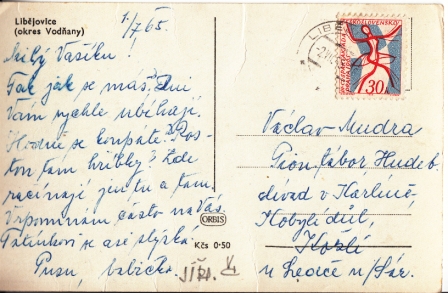 Libějovice
(okres Vodňany)
1/7 65.
Milý Vašíku!
Tak jak se máš? Dni
Vám rychle ubíhají.
Hodně se koupáte? Ros-
tou tam hříbky? Zde
začínají jen tu a tam.
Vzpomínám často na Vás.
Tatínkovi je asi stýská.
Pusu, babička.
ORBIS
Kčs 0·50
ČESKOSLOVENSKO
30
LIB
Václav Mudra
Pion. tábor Hudeb.
divad. v Karlíně,
Kobylí důl,
Kožlí
u Ledče n/Sáz.